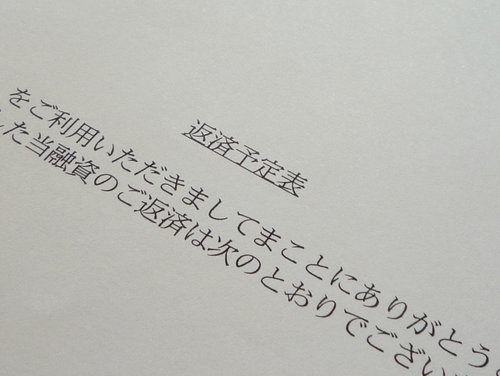 返済予定表
をご利用いただきましてまことにありがとう
た当融資のご返済は次のとおりでござい